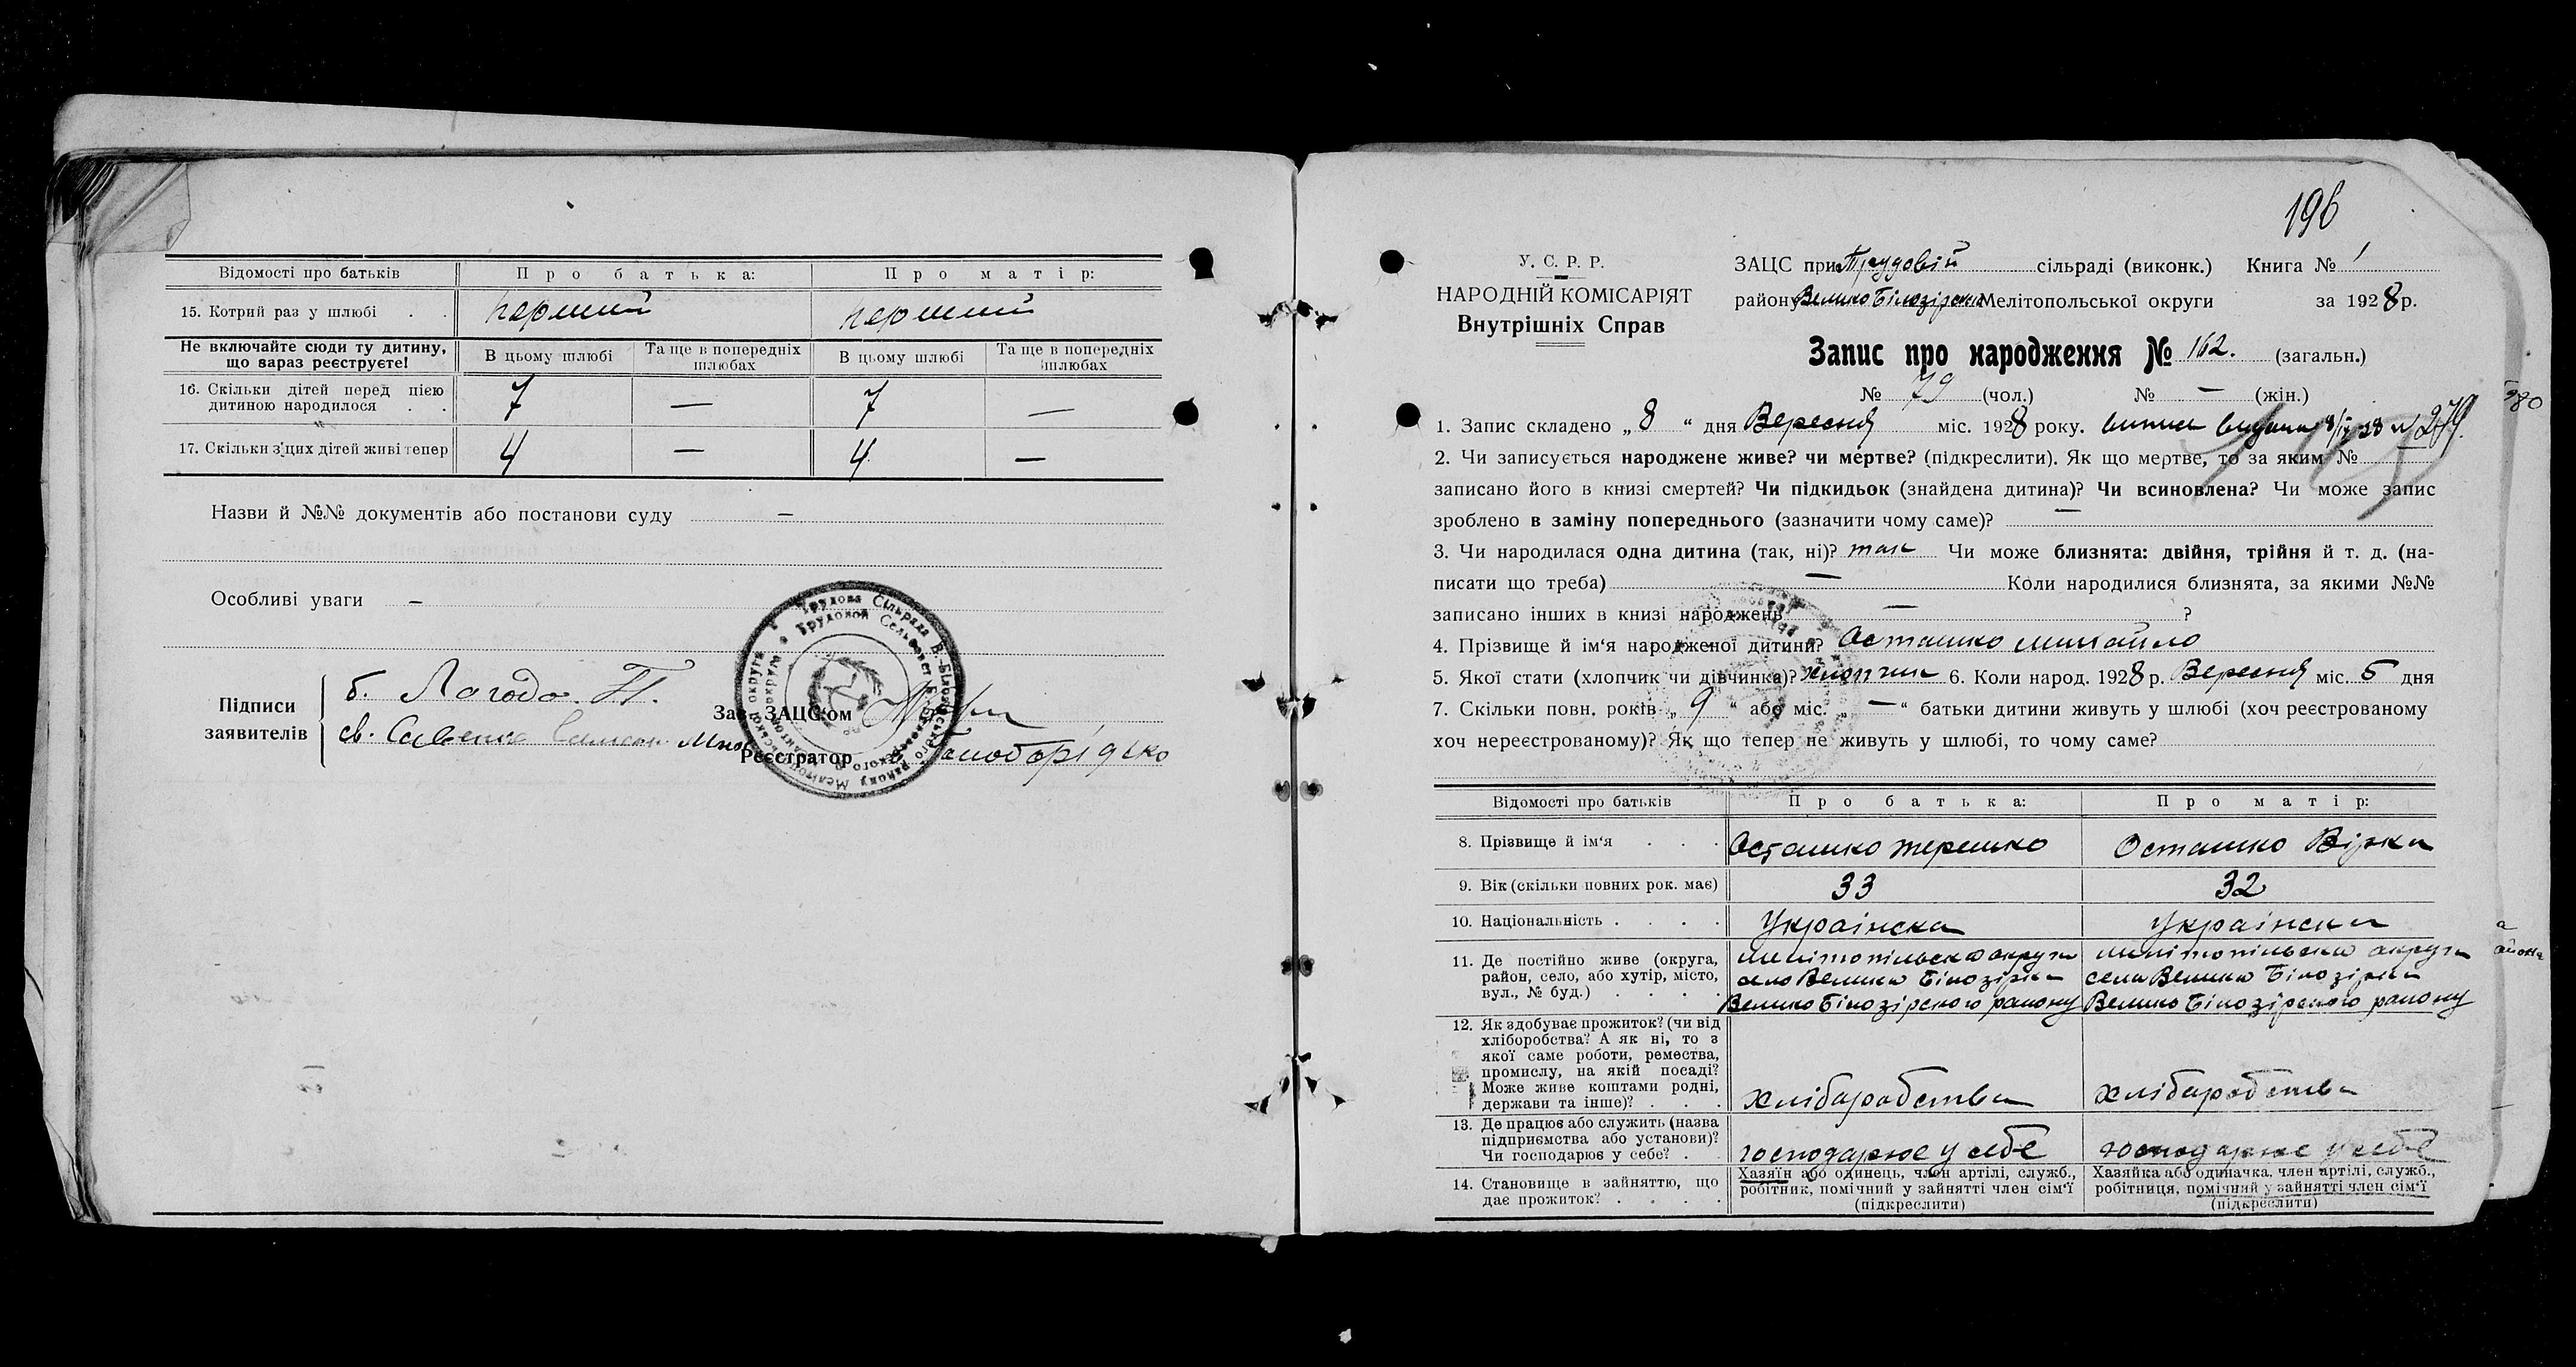 Відомості про батьків Про батька: Про матір:
15. Котрий раз у шлюбі . . перший перший
Не включайте сюди ту дитину, що зараз реєструєте! В цьому шлюбі Та ще в попередніх шлюбах В цьому шлюбі Та ще в попередніх шлюбах
16. Скільки дітей перед цією
дитиною народилося . . 7 — 7 —
17. Скільки з цих дітей живі тепер 4 — 4 —
Назви й №№ документів або постанови суду —
Особливі уваги —
Підписи
заявителів
б. Лагода П.
св.
Зав. ЗАЦС'ом
Реєстратор
196
У. С. Р. Р.
НАРОДНІЙ КОМІСАРІЯТ
Внутрішніх Справ
ЗАЦС при Трудовій сільраді (виконк.) Книга № 1
району Велико Білозірська Мелітопольської округи за 1928 р.
Запис про народження № 162. (загальн.)
№ 79 (чол.) № — (жін.)
1. Запис складено „8“ дня Вересня міс. 1928 року. випись видана 8/IX 28 № 279.
2. Чи записується народжене живе? чи мертве? (підкреслити). Як що мертве, то за яким №
записано його в книзі смертей? Чи підкидьок (знайдена дитина)? Чи всиновлена? Чи може запис
зроблено в заміну попереднього (зазначити чому саме)? —
3. Чи народилася одна дитина (так, ні)? так Чи може близнята: двійня, трійня й т. д. (на-
писати що треба) — Коли народилися близнята, за якими №№
записано інших в книзі народжень — ?
4. Прізвище й ім'я народженої дитини? Осташко Михайло
5. Якої стати (хлопчик чи дівчинка)? хлопчик 6. Коли народ. 1928 р. Вересня міс. 5 дня
7. Скільки повн. років „9“ або міс. „—“ батьки дитини живуть у шлюбі (хоч реєстрованому
хоч нереєстрованому)? Як що тепер не живуть у шлюбі, то чому саме?
Відомості про батьків Про батька: Про матір:
8. Прізвище й ім'я . . . Осташко Терешко Осташко Вірка
9. Вік (скільки повних рок. має) 33 32
10. Національність . . . . Українска Українска
11. Де постійно живе (округа,
район, село, або хутір, місто,
вул., № буд.) . . . .
Мелітопільска округа
село Велика Білозірка
Велико Білозірского району
Мелітопільска округа
село Велика Білозірка
Велико Білозірского району
12. Як здобуває прожиток? (чи від
хліборобства? А як ні, то з
якої саме роботи, ремества,
промислу, на якій посаді?
Може живе коштами родні,
держави та інше)? . . .
хлібаробства хлібаробства
13. Де працює або служить (назва
підприємства або установи)?
Чи господарює у себе? . .
господарює у себе господарює у себе
14. Становище в зайняттю, що
дає прожиток? . . . .
Хазяїн або одинець, член артілі, служб.,
робітник, помічний у зайнятті член сім'ї
(підкреслити)
Хазяйка або одиначка, член артілі, служб.,
робітниця, помічний у зайнятті член сім'ї
(підкреслити)